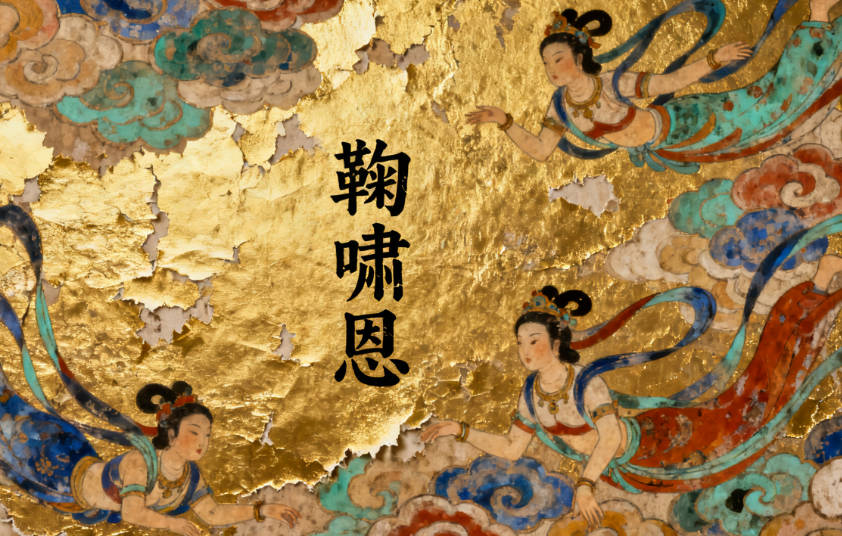 鞠啸恩